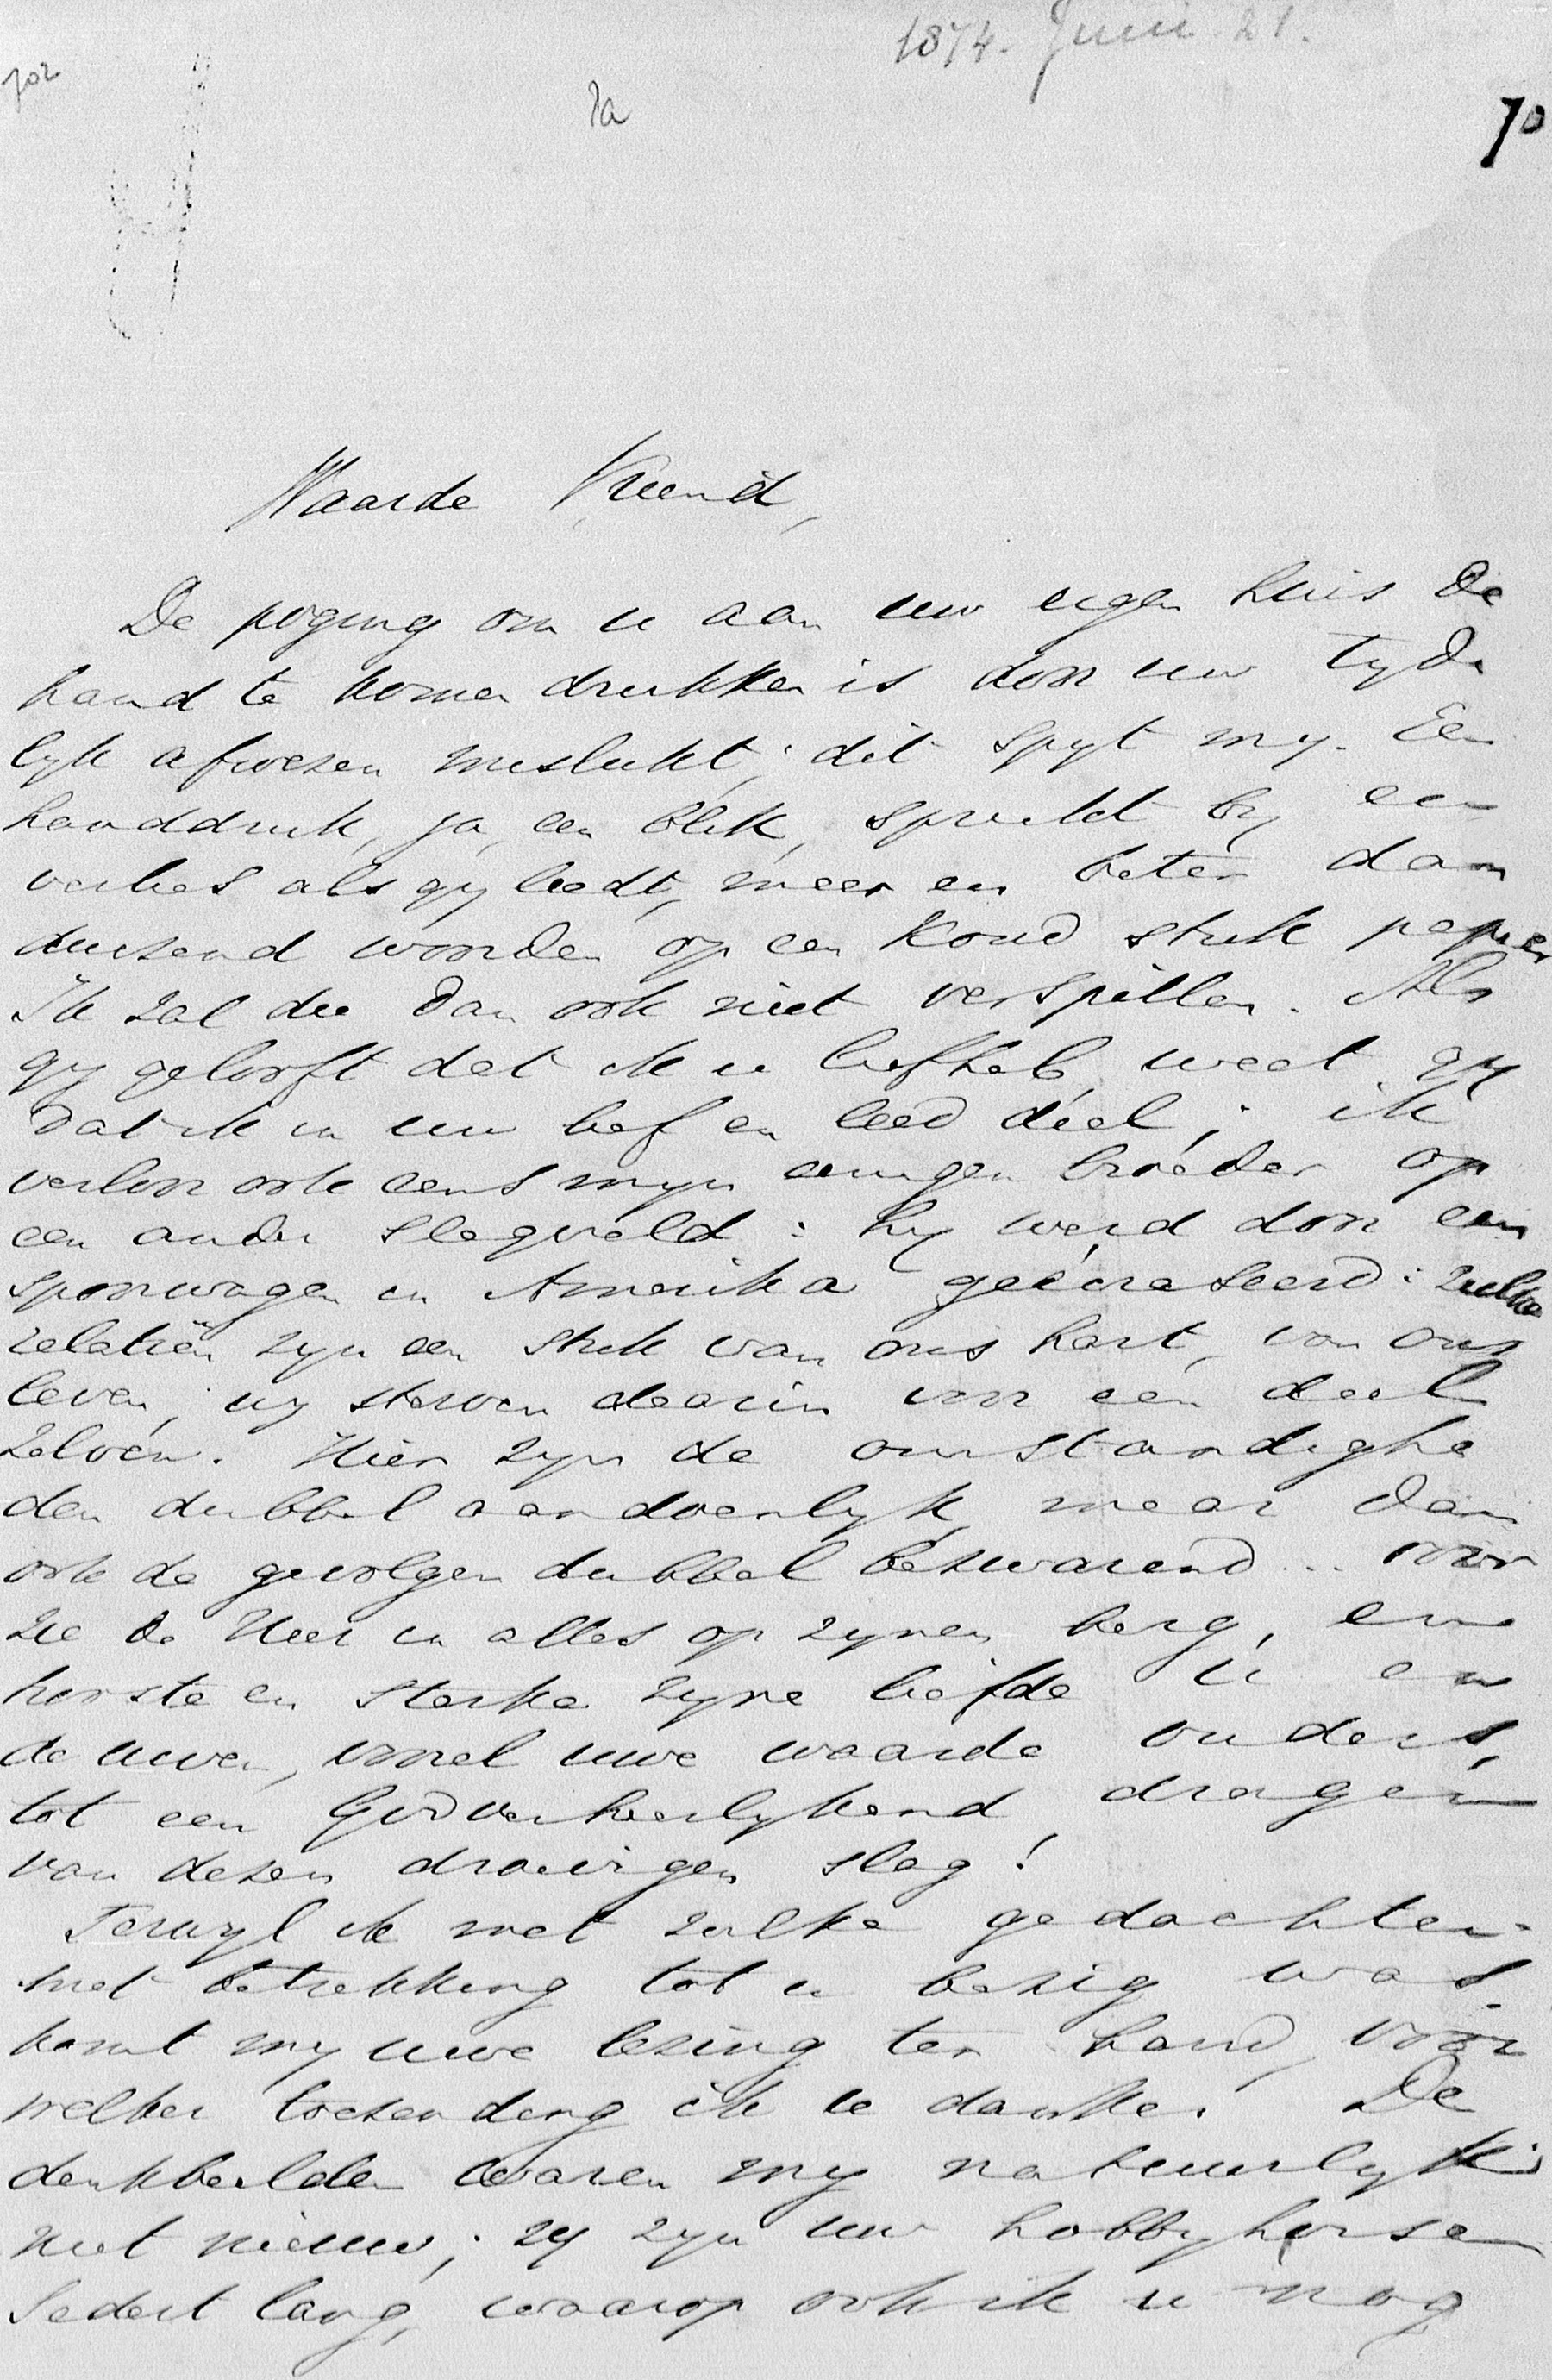 1874. Juni 21.
702
7a
70
Waarde Vriend,
De poging om u aan uw eigen huis de
hand te komen drukken is door uw tyde
lyk afwezen mislukt; dit spyt my. Een
handdruk, ja, een blik, spreekt by een
verlies als gy leedt, meer en beter dan
duizend woorden op een koud stuk papier
Ik zal die dan ook niet verspillen. Als
gy gelooft dat ik u liefheb, weet gy
dat ik in uw lief en leed deel; ik
verloor ook eens myn eenigen broeder op
een ander slagveld: hy werd door een
spoorwagen in Amerika geëcraseerd: zulke
relatiën zyn een stuk van ons hart, van ons
leven; wy sterven daarin voor een deel
zelven. Hier zyn de omstandighe
den dubbel aandoenlyk, maar dan
ook de gevolgen dubbel bezwarend... voor
zie de Heer in alles op zynen berg, en
trooste en sterke zyne liefde u en
de uwen, vooral uwe waarde ouders,
tot een Godverheerlykend dragen
van dezen droevigen slag!
Terwyl ik met zulke gedachten
met betrekking tot u bezig was,
komt my uwe lezing ter hand, voor
welker toezending ik u danke. De
denkbeelden waren my natuurlyk
niet nieuw; zy zyn uw hobbyhorse
sedert lang, waarop ook ik u nog